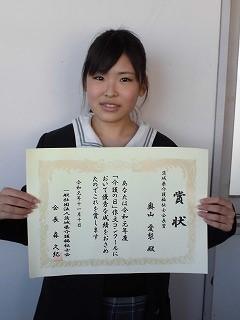 茨城県介護福祉士会長賞
賞状
奥山 愛梨 殿
あなたは令和元年度
「介護の日」作文コンクールに
おいて優秀な成績をおさめ
たのでこれを賞します
令和元年十一月十日
一般社団法人茨城県介護福祉士会
会長 森 久紀